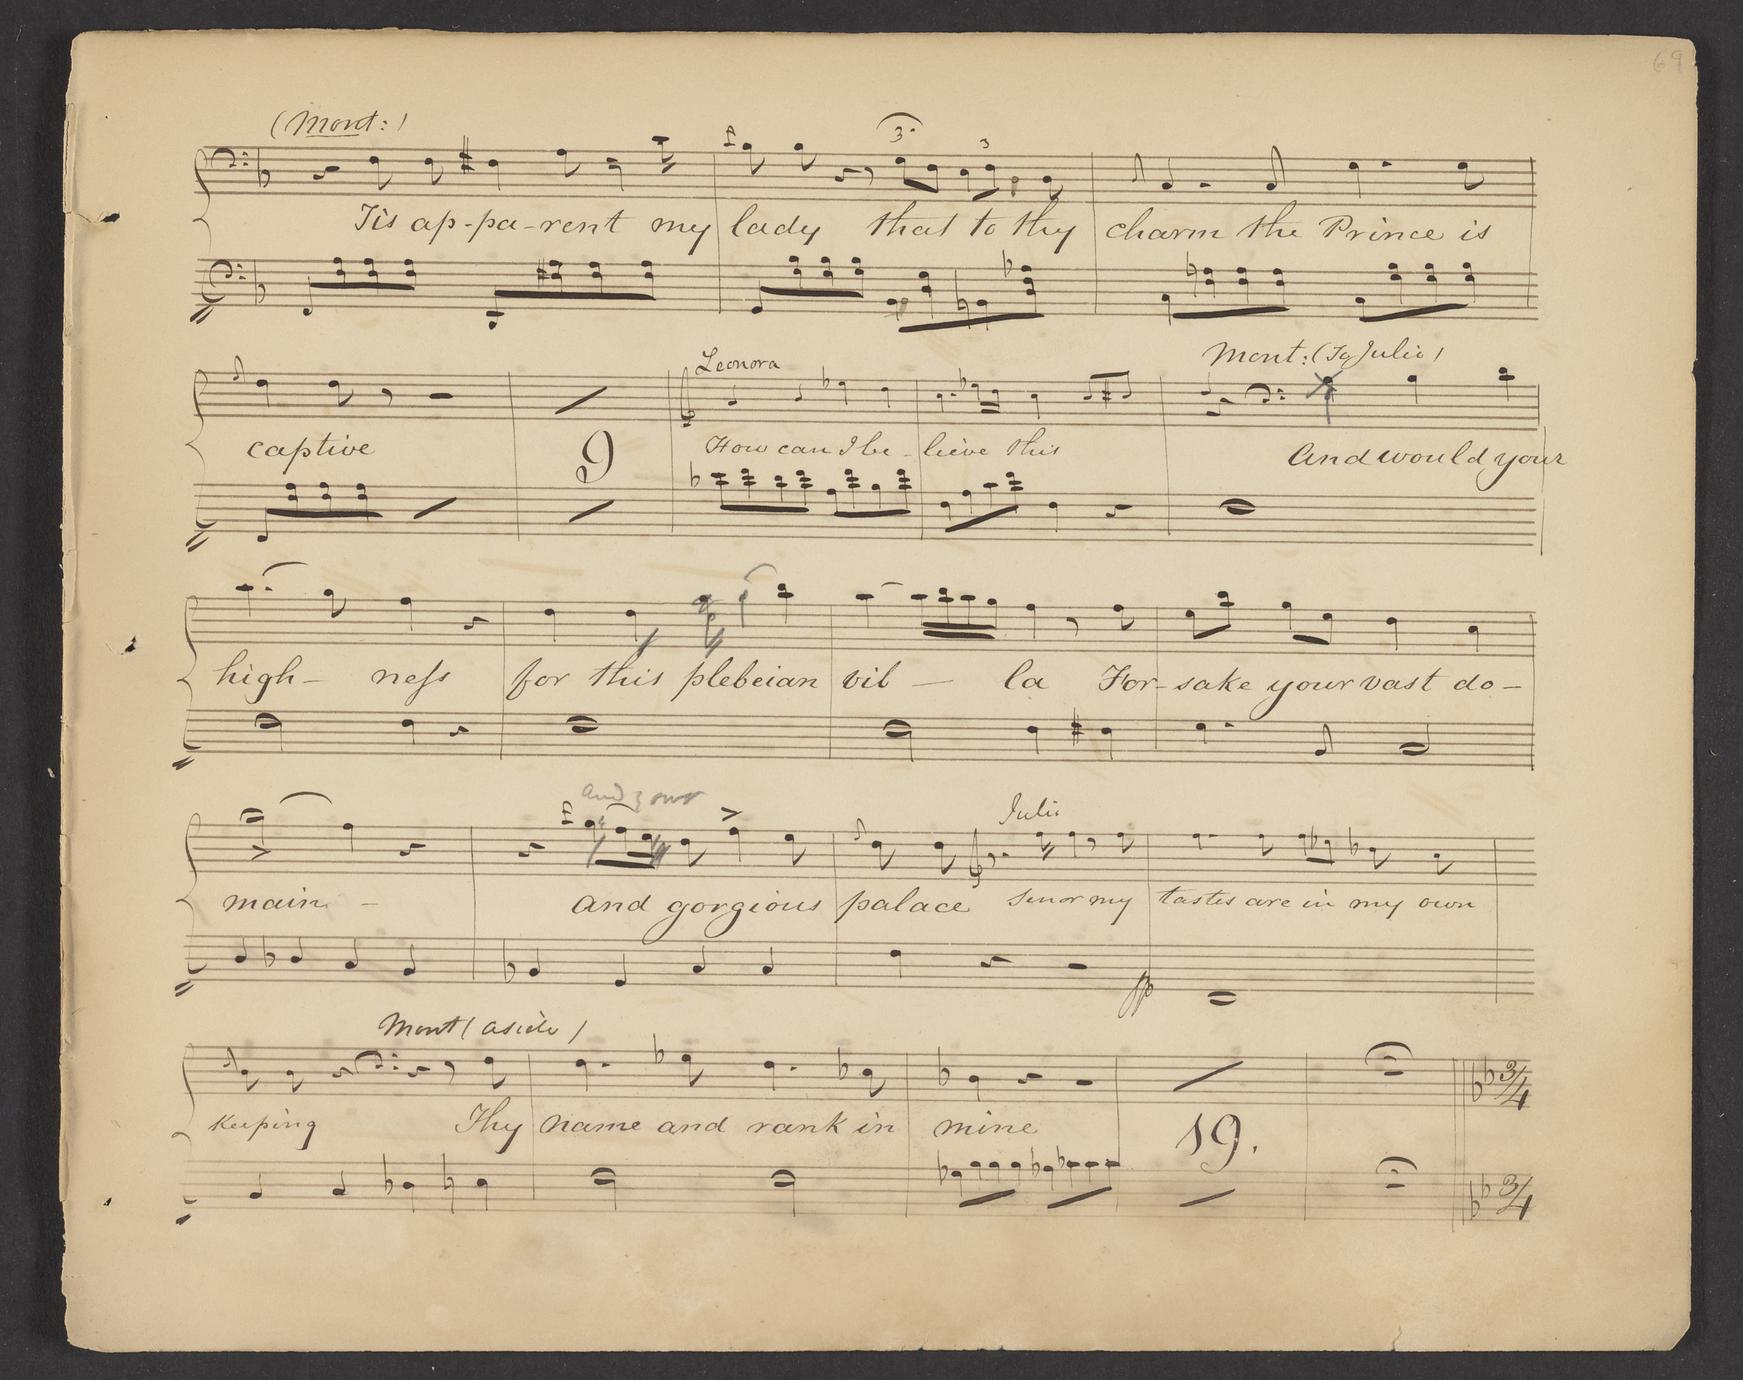 69
(Mont:)
3 3
Tis ap-pa-rent my lady that to thy charm the Prince is
Leonora Mont: (To Julio)
captive 9 How can I be - lieve this And would your
high - neſs for this plebeian vil - la For-sake your vast do -
and your
Julio
main - and gorgious palace Senor my tastes are in my own
fp
Mont (aside)
3/4
keeping Thy name and rank in mine 19.
3/4